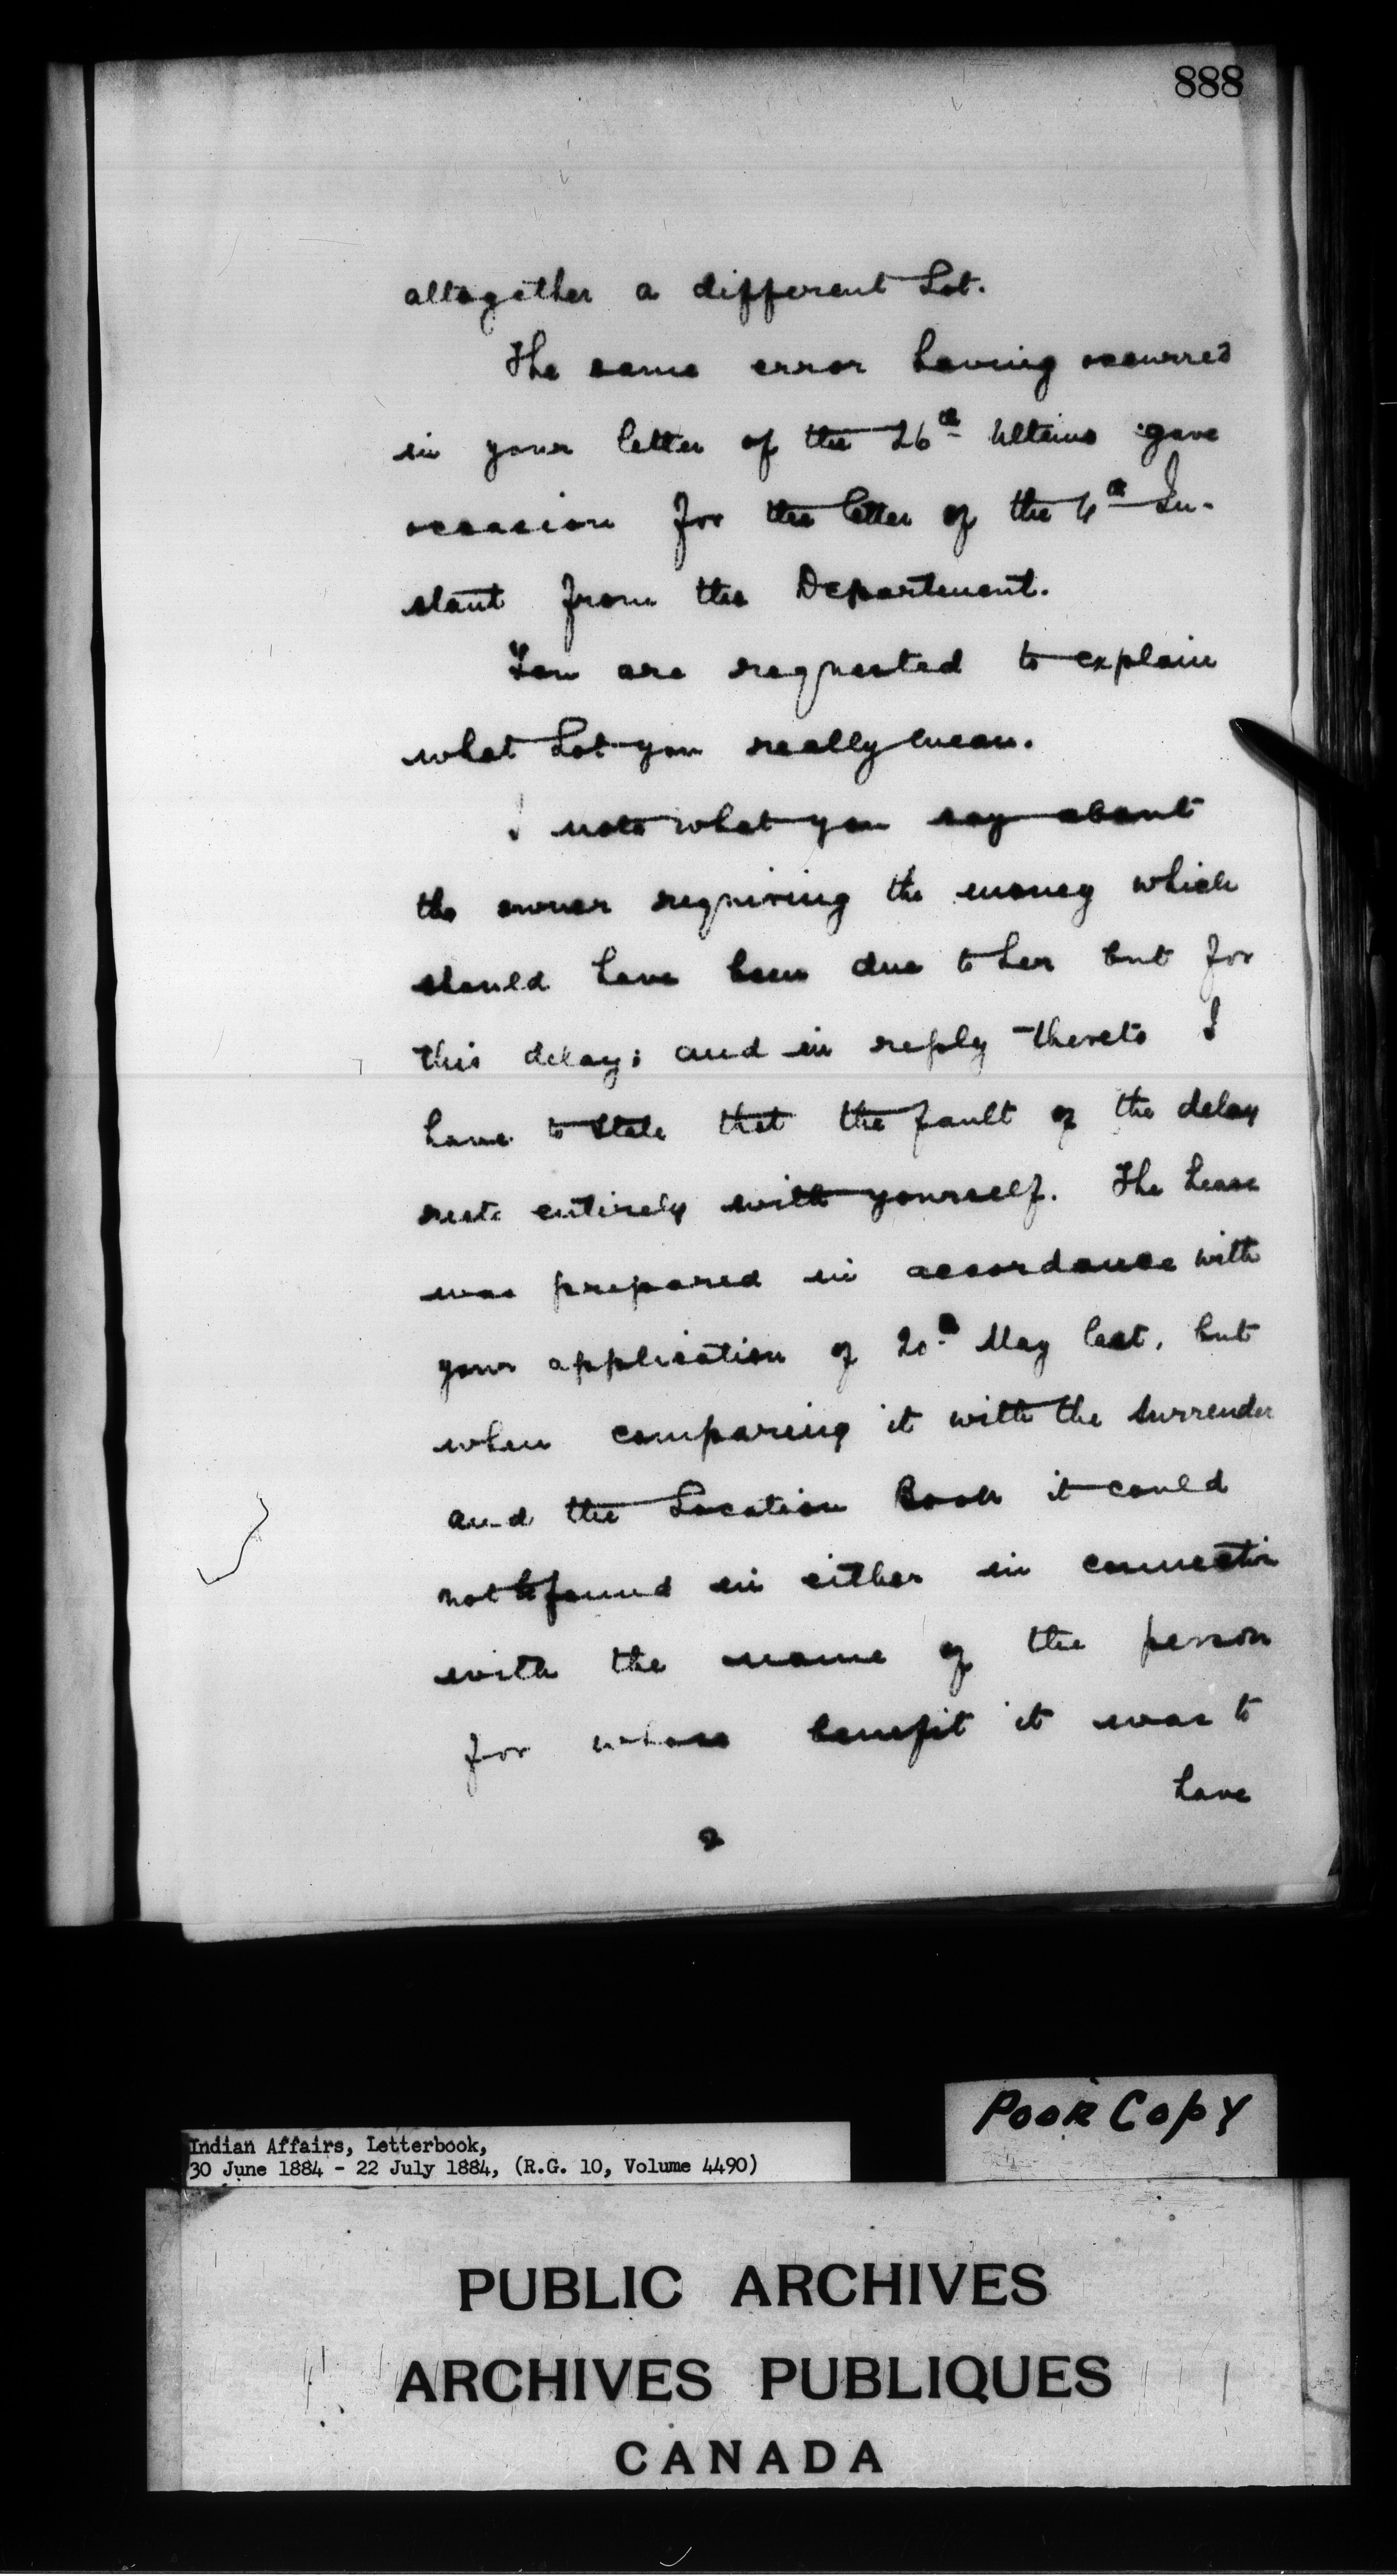 888
altogether a different Lot.
The same error having occurred
in your letter of the 26th Ultimo gave
occasion for the letter of the 4th In-
stant from the Department.
You are requested to explain
what Lot you really mean.
I note what you say about
the owner requiring the money which
should have been due to her but for
this delay; and in reply thereto I
have to state that the fault of the delay
rests entirely with yourself. The Lease
was prepared in accordance with
your application of 20th May last, but
when comparing it with the Surrender
and the Location Book it could
not be found in either in connection
with the name of the person
for whose benefit it was to
have
2
Poor Copy
Indian Affairs, Letterbook,
30 June 1884 - 22 July 1884, (R.G. 10, Volume 4490)
PUBLIC ARCHIVES
ARCHIVES PUBLIQUES
CANADA